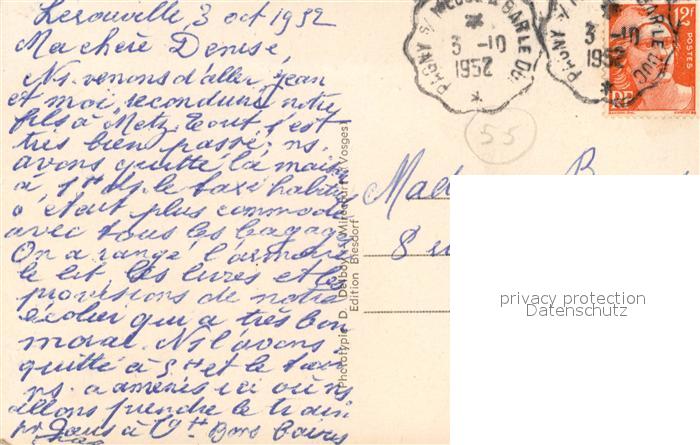 Lerouville, 3 oct 1952
Ma chère Denise,
Ns. venons d'aller, Jean
et moi, reconduire notre
fils à Metz. Tout s'est
très bien passé; ns.
avons quitté la maison
à 1H le taxi
c'était plus commode
avec tous les bagages
On a rangé l'armoire
le lit, les livres et les
provisions de notre
écolier qui a très bon
moral. Ns l'avons
quitté à 5H et le taxi
ns. a amenés ici où ns
allons prendre le train
Bons baisers
PAGNY S/ MEUSE A BAR LE DUC
3 -10
1952
PAGNY S/ MEUSE A BAR LE DUC
3 -10
1952
12F
POSTES
RF
55
Phototypie D. Delboy - Mirecourt - Vosges
Edition Biesdorf
privacy protection
Datenschutz